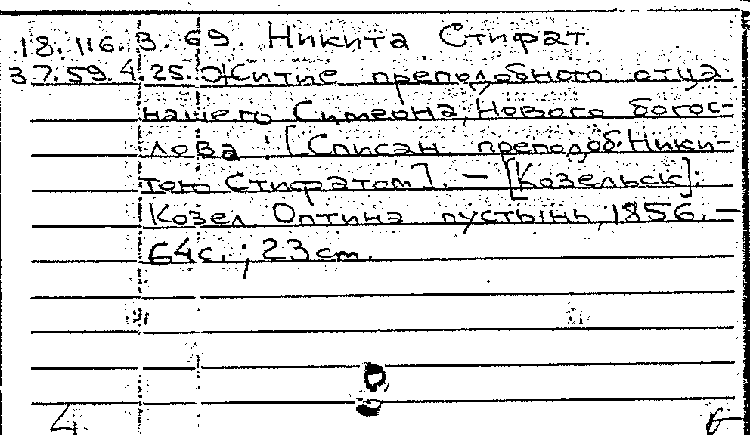 18.116.3.69. Никита Стифат.
37.59.4.25. Житие преподобного отца
нашего Симеона, Нового богос-
лова : [Списан преподоб. Ники-
тою Стифатом]. — [Козельск]:
Козел. Оптина пустынь, 1856. —
64с. ; 23 см.
4 б